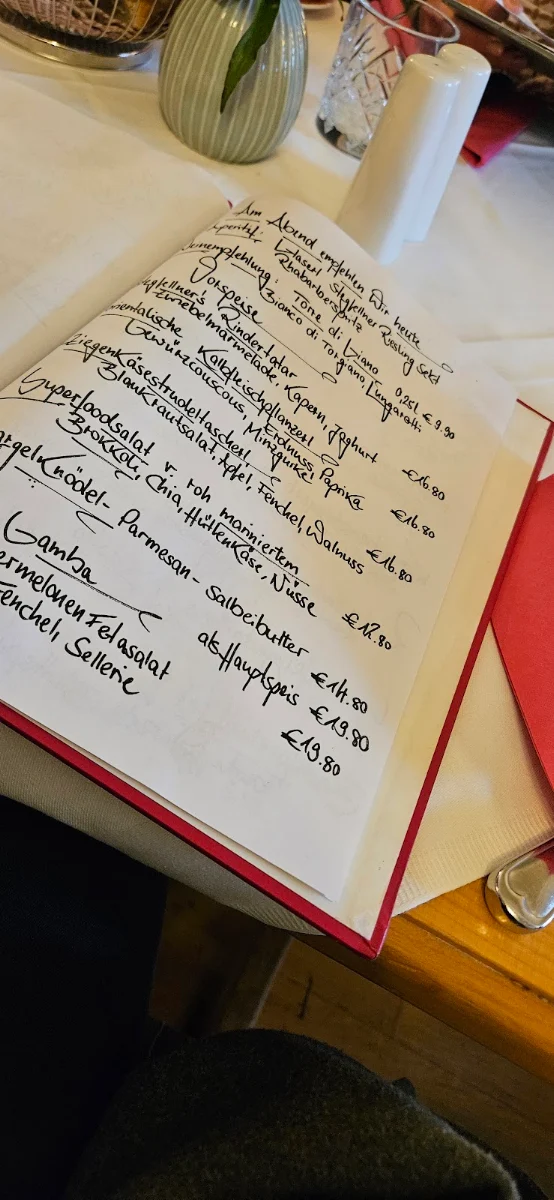 Am Abend empfehlen Wir heute
Glaserl Stugfellner Riesling Sekt
Rhabarberspritz
Torre di Giano 0,25l € 9.90
Bianco di Torgiano, Lungarotti
Vorspeise
Rindertatar
Zwiebelmarmelade, Kapern, Joghurt €16.80
Kalbfleischpflanzerl
Gewürzcouscous, Erdnuss, Paprika €16.80
ZiegenKäsestrudeltascherl
BlauKrautsalat, Apfel, Fenchel, Walnuss €16.80
Superfoodsalat v. roh mariniertem
BroKKoli, Chia, HüttenKäse, Nüsse €17.80
Knödel- Parmesan - Salbeibutter €14.80
als Hauptspeis €19.80
Gamba €19.80
Fetasalat
Fenchel, Sellerie